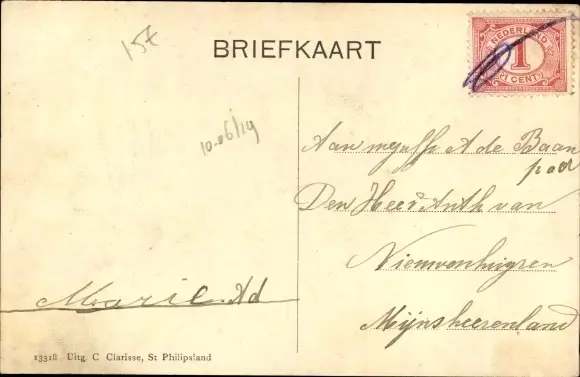 15€
BRIEFKAART
NEDERLAND
1
1 CENT
10.06/19
Aan mejuffr A de Baan
p ad
Den Heer Anth van
Nieuwenhuijzen
Mijnsheerenland
Marie Ad
13318 Uitg. C Clarisse, St Philipsland